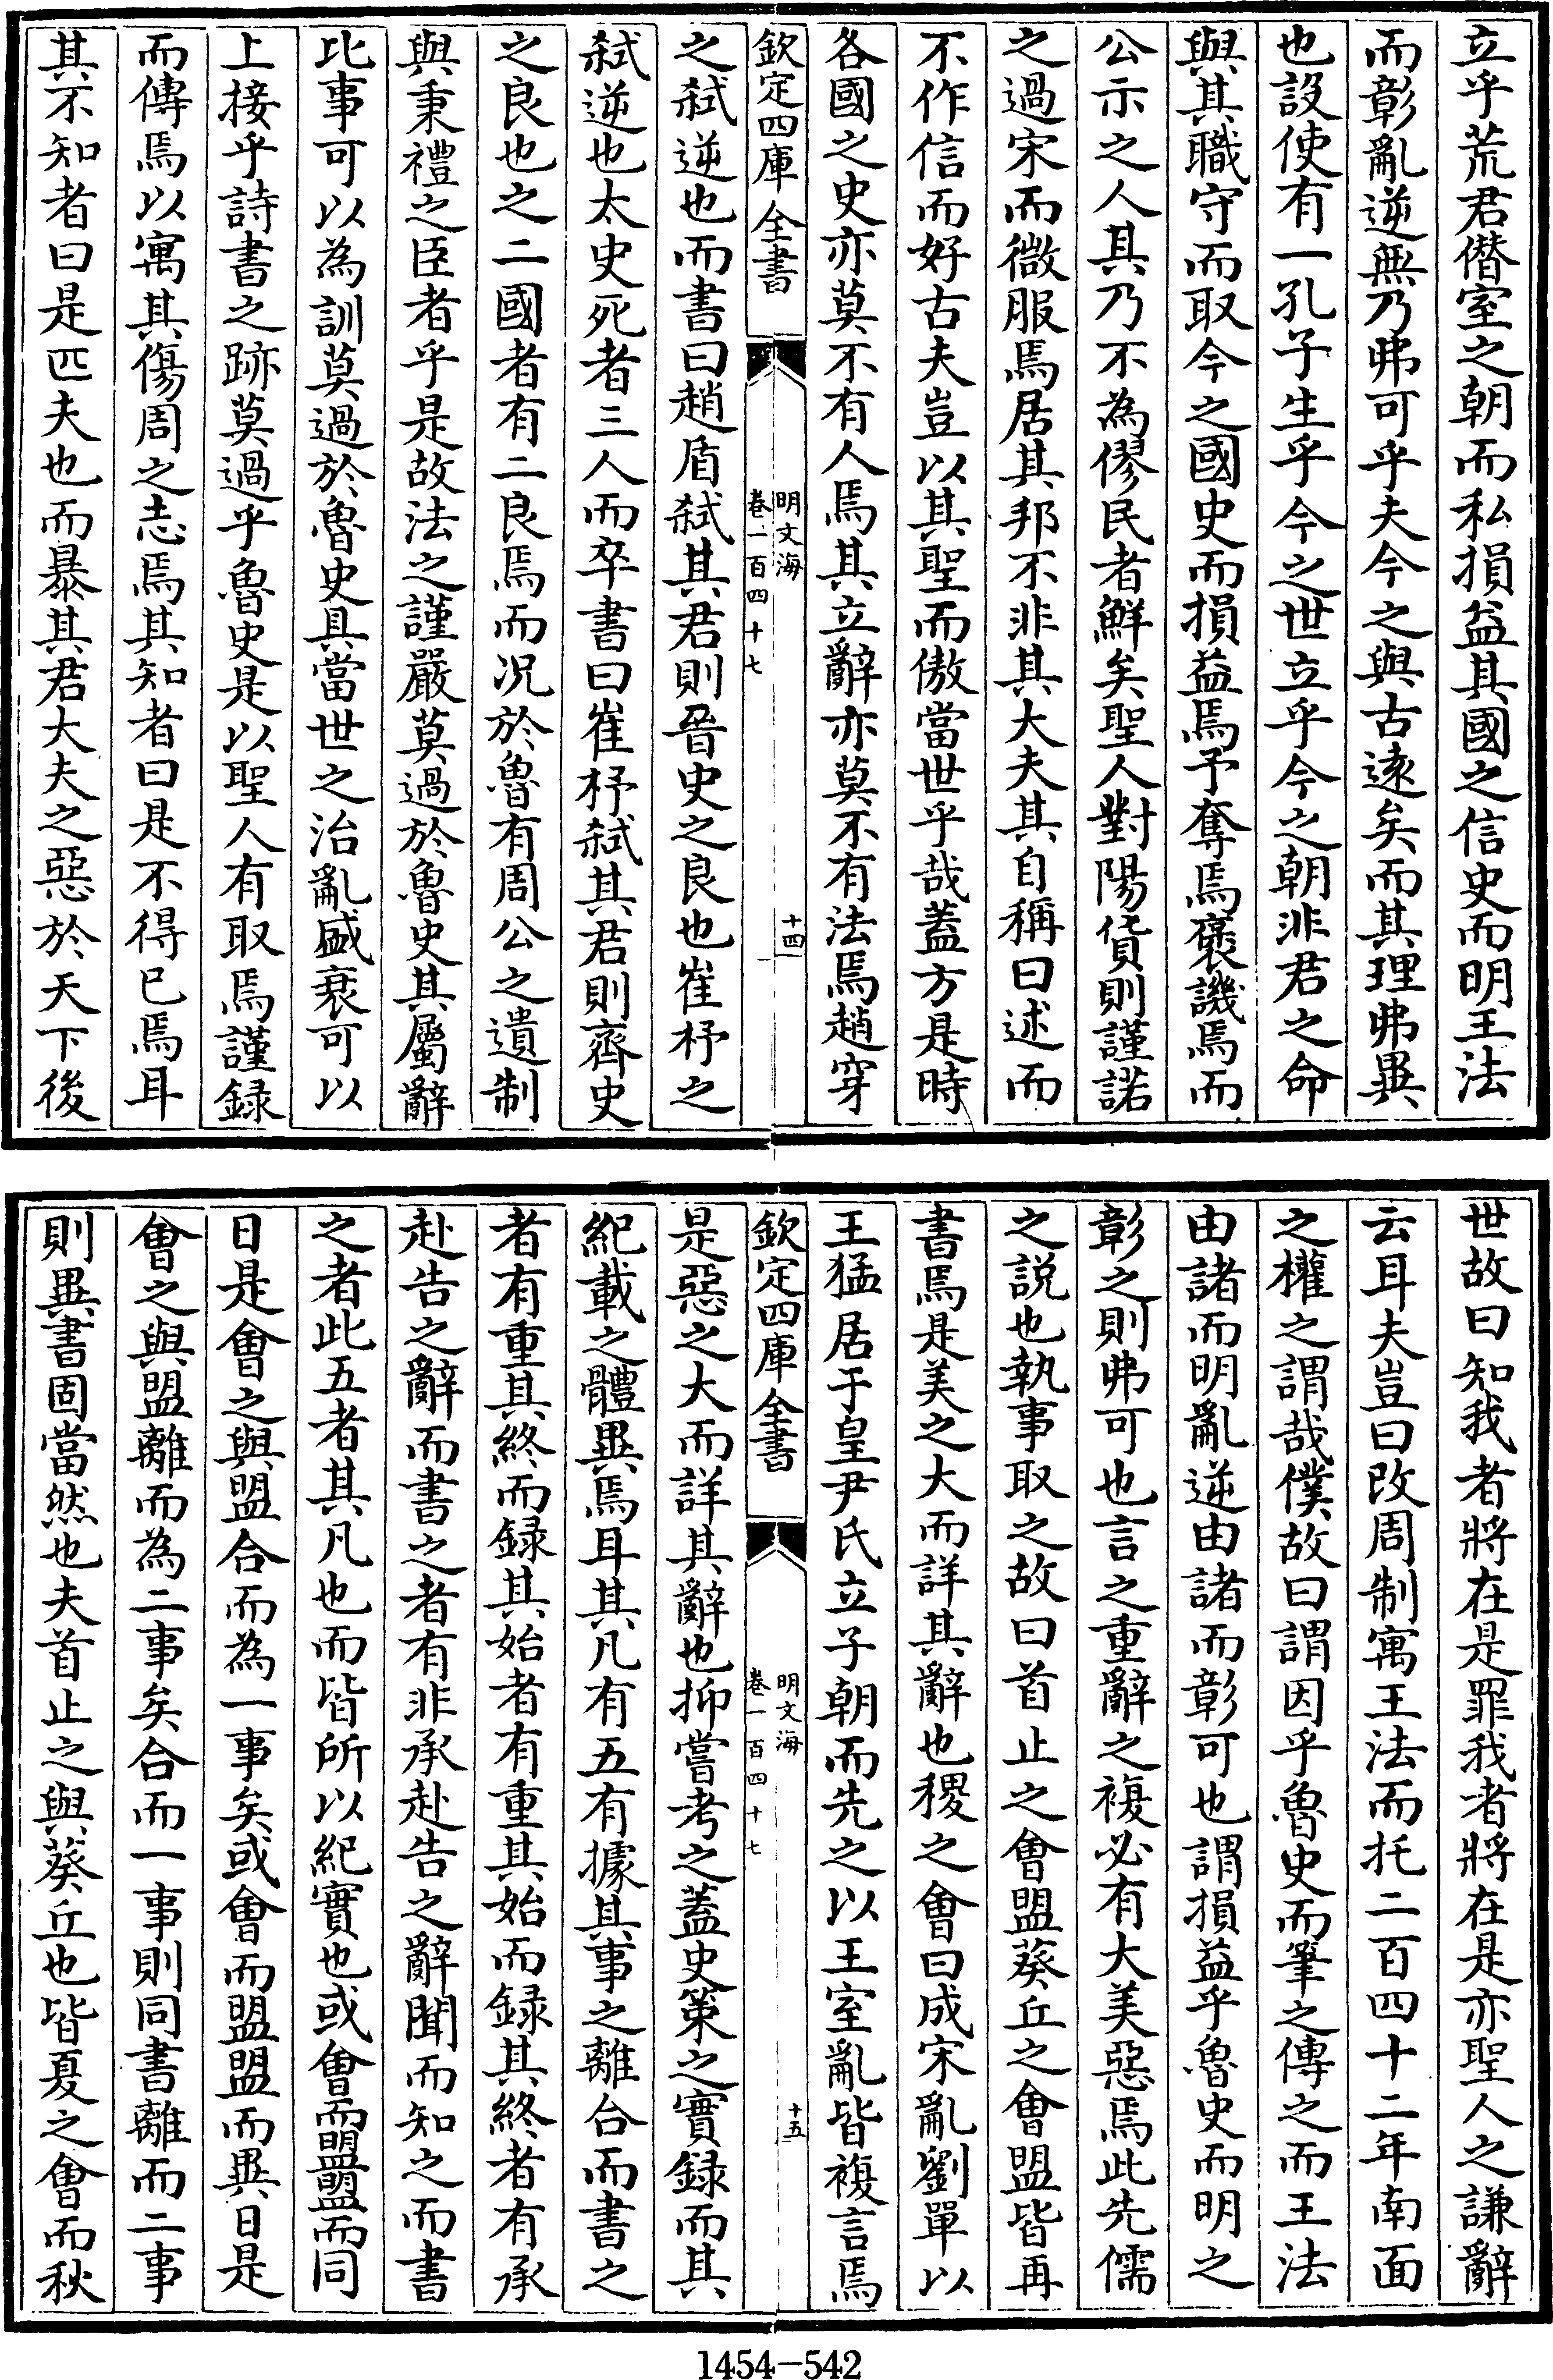 立乎荒君僭室之朝而私損益其國之信史而明王法
而彰亂逆無乃弗可乎夫今之與古遠矣而其理弗異
也設使有一孔子生乎今之世立乎今之朝非君之命
與其職守而取今之國史而損益焉予奪焉褒譏焉而
公示之人其乃不為僇民者鮮矣聖人對陽貨則謹諾
之過宋而微服焉居其邦不非其大夫其自稱曰述而
不作信而好古夫豈以其聖而傲當世乎哉蓋方是時
各國之史亦莫不有人焉其立辭亦莫不有法焉趙穿
欽定四庫全書
明文海
卷一百四十七
十四
之弑逆也而書曰趙盾弑其君則晉史之良也崔杼之
弑逆也太史死者三人而卒書曰崔杼弑其君則齊史
之良也之二國者有二良焉而况於魯有周公之遺制
與秉禮之臣者乎是故法之謹嚴莫過於魯史其屬辭
比事可以為訓莫過於魯史具當世之治亂盛衰可以
上接乎詩書之跡莫過乎魯史是以聖人有取焉謹録
而傳焉以寓其傷周之志焉其知者曰是不得已焉耳
其不知者曰是匹夫也而暴其君大夫之惡於天下後
世故曰知我者將在是罪我者將在是亦聖人之謙辭
云耳夫豈曰改周制寓王法而托二百四十二年南面
之權之謂哉僕故曰謂因乎魯史而筆之傳之而王法
由諸而明亂逆由諸而彰可也謂損益乎魯史而明之
彰之則弗可也言之重辭之複必有大美惡焉此先儒
之説也執事取之故曰首止之會盟葵丘之會盟皆再
書焉是美之大而詳其辭也稷之會曰成宋亂劉單以
王猛居于皇尹氏立子朝而先之以王室亂皆複言焉
欽定四庫全書
明文海
卷一百四十七
十五
是惡之大而詳其辭也抑嘗考之蓋史策之實録而其
紀載之體異焉耳其凡有五有據其事之離合而書之
者有重其終而録其始者有重其始而録其終者有承
赴告之辭而書之者有非承赴告之辭聞而知之而書
之者此五者其凡也而皆所以紀實也或會而盟盟而同
日是會之與盟合而為一事矣或會而盟盟而異日是
會之與盟離而為二事矣合而一事則同書離而二事
則異書固當然也夫首止之與葵丘也皆夏之會而秋
1454-542